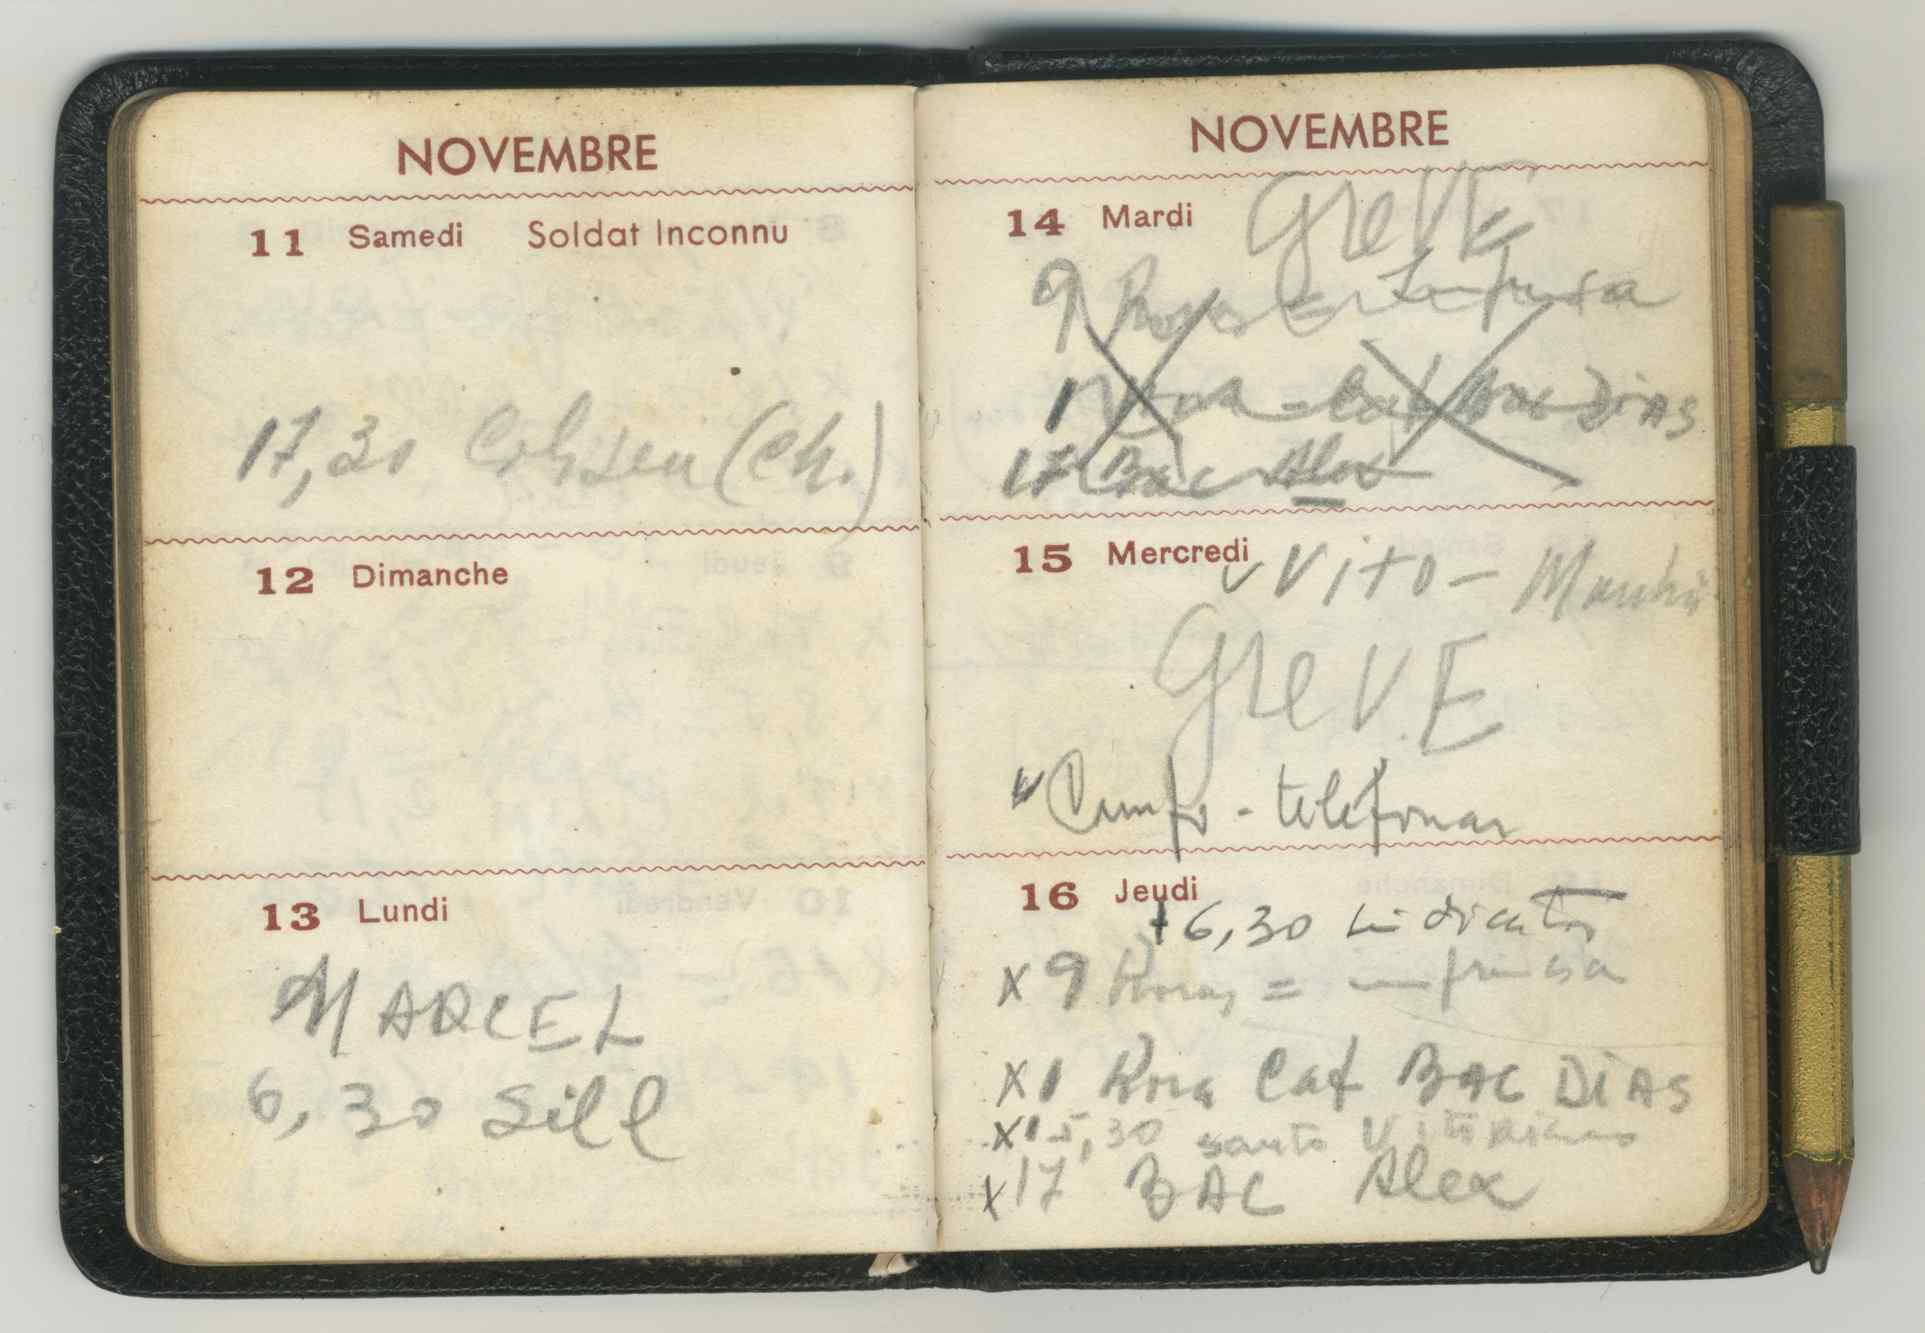 NOVEMBRE
11 Samedi Soldat Inconnu
17,30 Coliseu (Ch.)
12 Dimanche
13 Lundi
MARCEL
6,30 Sill
NOVEMBRE
14 Mardi GreVE
9 Horas =
1 Hora = Caf Bac DiAS
17 Bac Alex
15 Mercredi Vito - Manhã
GreV.E
- telefonar
16 Jeudi
+ 6,30
X 9 Horas =
X 1 Hora Caf BAC DiAS
X 15,30 santo
X 17 BAC Alex